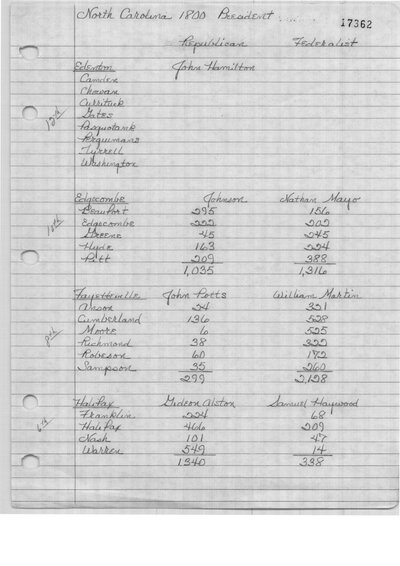 North Carolina 1800 President
17362
Republican Federalist
Edenton John Hamilton
Camden
Chowan
Currituck
Gates
Pasquotank
Perquimans
Tyrrell
Washington
12th
Edgecombe Johnson Nathan Mayo
Beaufort 295 156
Edgecombe
Greene 45 245
Hyde 163 224
Pitt 209 388
1,035 1,316
10th
Fayetteville John Potts William Martin
Anson 24 321
Cumberland 136 528
Moore 6 525
Richmond 38 322
Robeson 60 172
Sampson 35 260
299 2,128
8th
Halifax Gideon Alston Samuel Haywood
Franklin 224 68
Halifax 466 209
Nash 101 47
Warren 549 14
1340 338
6th